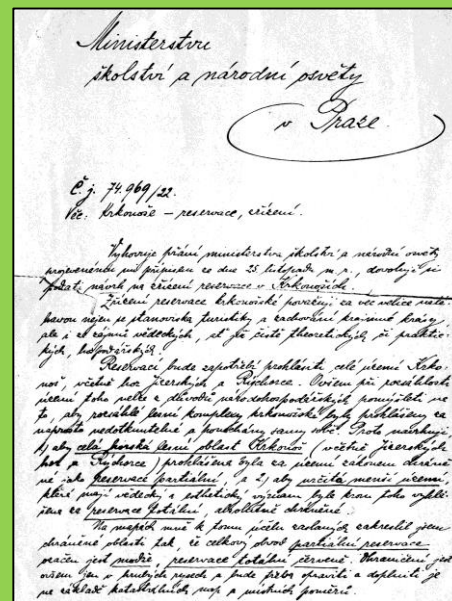 Ministerstvu
školství a národní osvěty
v Praze.
Č.j. 74.969/22.
Věc: Krkonoše – reservace, zřízení.
Vyhovuje přání ministerstva školství a národní osvěty
projevenému mi přípisem ze dne 25. listopadu m. r., dovoluji si
podati návrh na zřízení reservace v Krkonoších.
Zřízení reservace krkonošské považuji za věc velice naléhavou
nejen se stanoviska turistiky a zachování krajinné krásy,
ale i ze zájmů vědeckých, ať již čistě theoretických, či praktických,
hospodářských.
Reservací bude zapotřebí prohlásiti celé území Krkonoš,
včetně hor Jizerských a Rýchorce. Ovšem při rozsáhlosti
území toho nelze z důvodů národohospodářských pomýšleti na
to, aby rozsáhlé lesní komplexy krkonošské byly prohlášeny za
naprosto nedotknutelné a ponechány samy sobě. Proto navrhuji,
1) aby celá horská lesní oblast Krkonoš (včetně Jizerských
hor a Rýchorce) prohlášena byla za území zákonem chráněné
jako reservace partiální, a 2) aby určitá menší území,
která mají vědecký a esthetický význam byla krom toho vyhlášena
za reservace totální, absolutně chráněné.
Na mapách mně k tomu účelu zaslaných zakreslil jsem
chráněné oblasti tak, že celkový obvod partiální reservace
značen jest modře, reservace totální červeně. Ohraničení jest
ovšem jen v hrubých rysech a bude třeba opraviti a doplniti je
na základě katastrálních map a místních poměrů.